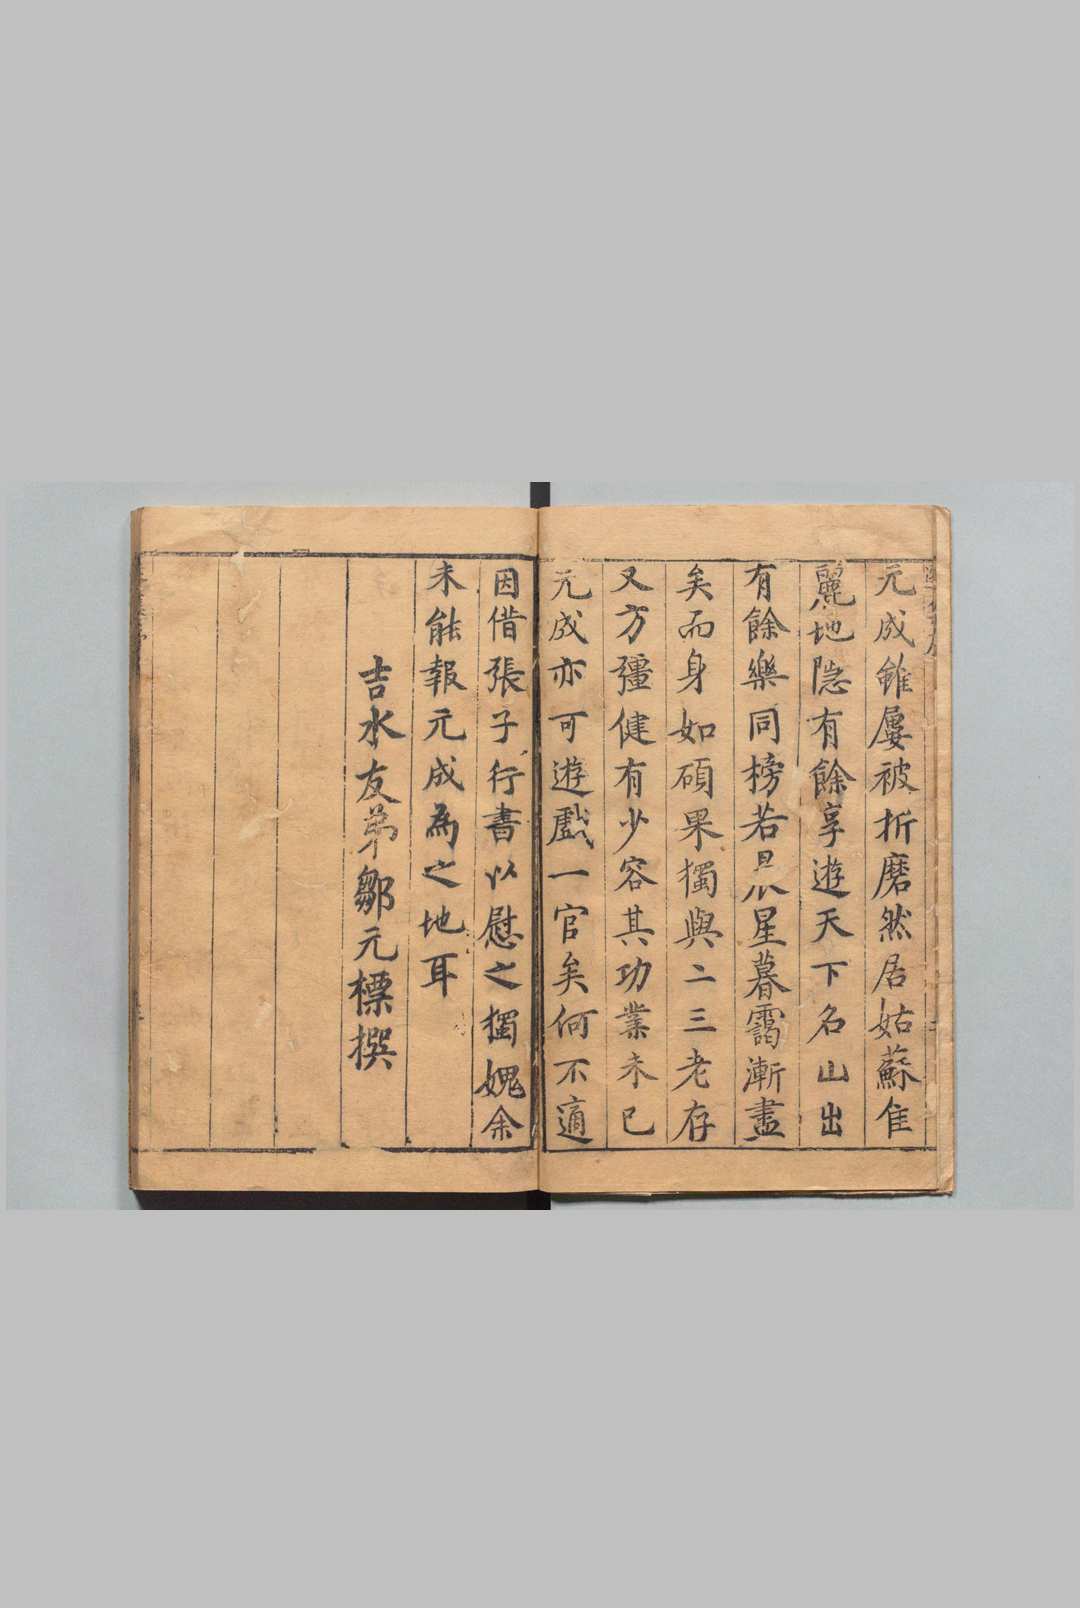 元成雖屢被折磨然居姑蘇佳
麗地隱有餘享遊天下名山出
有餘樂同榜若晨星暮靄漸盡
矣而身如碩果獨與二三老存
又方彊健有少容其功業未已
元成亦可遊戲一官矣何不適
因借張子行書以慰之獨媿余
未能報元成為之地耳
吉水友弟鄒元標撰